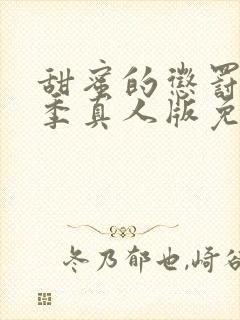 甜蜜的惩罚
季真人版免
冬乃郁也,崎谷